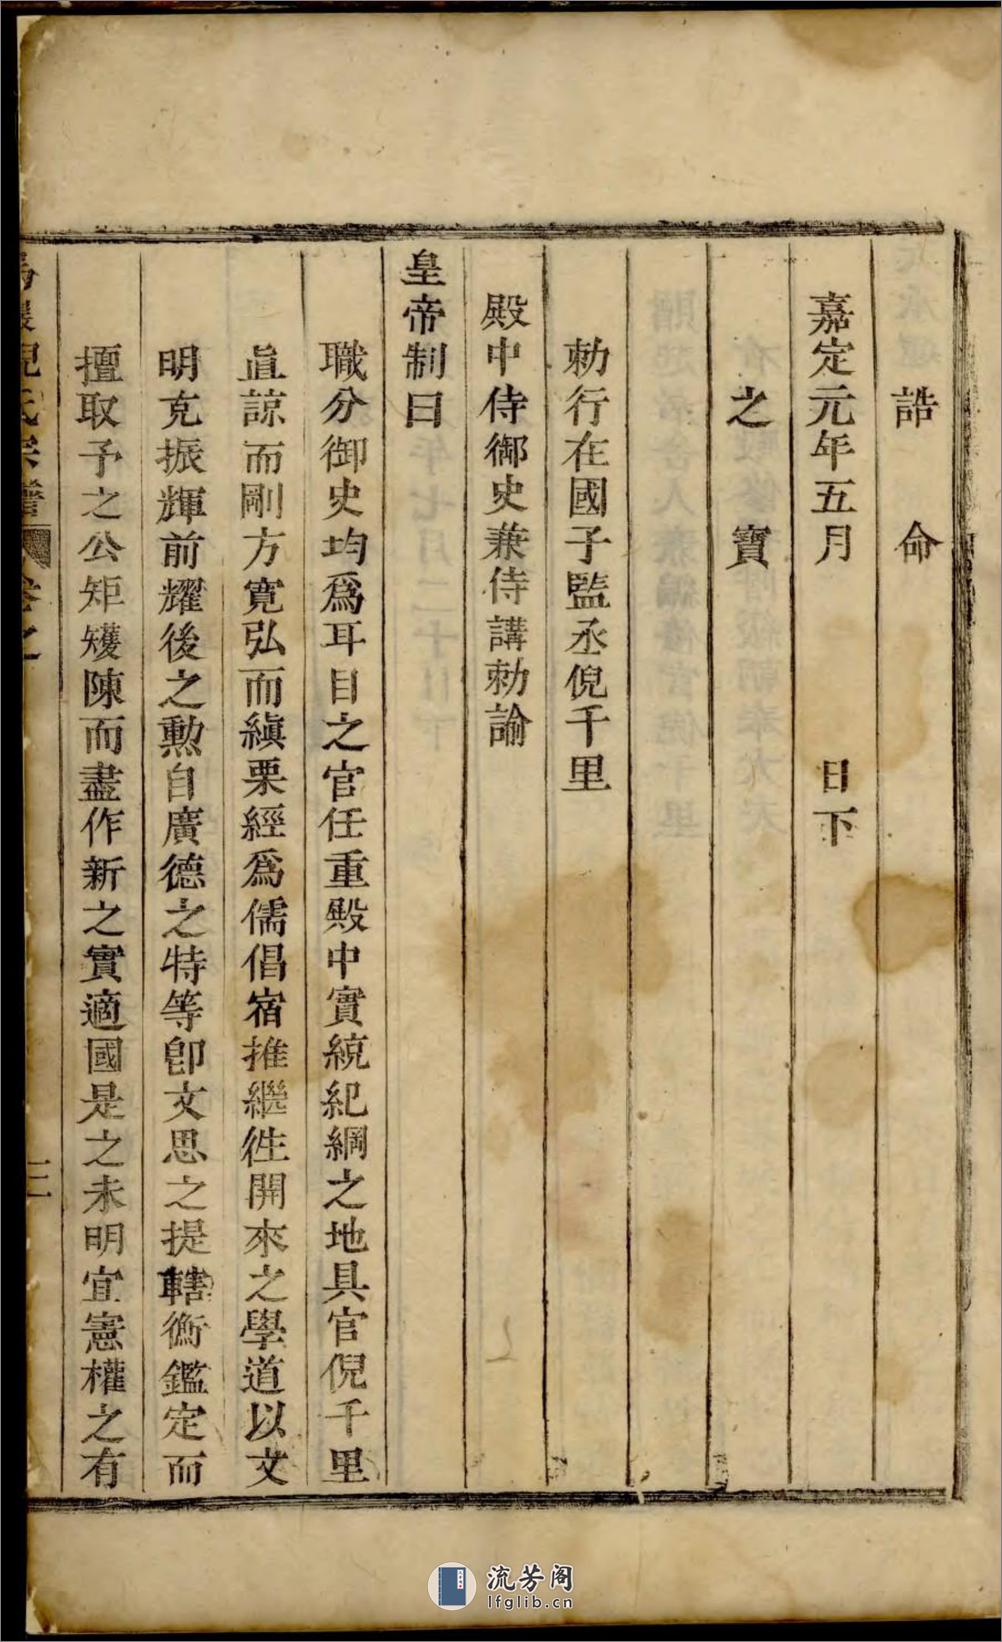 誥命
嘉定元年五月 日下
之寶
勅行在國子監丞倪千里
殿中侍御史兼侍講勅諭
皇帝制曰
職分御史均爲耳目之官任重殿中實統紀綱之地具官倪千里
眞諒而剛方寬弘而縝栗經爲儒倡宿推繼徃開來之學道以文
明克振輝前耀後之勲自廣德之特等卽文思之提轄衡鑑定而
擅取予之公矩矱陳而盡作新之實適國是之未明宜憲權之有
倪氏宗譜 卷之 三
流芳阁
lfglib.cn